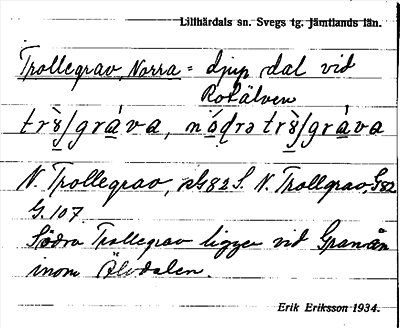 Lillhärdals sn. Svegs tg. Jämtlands län.
Trollegrav, Norra = djup dal vid
Rotälven
N. Trollegrav, S. N. Trollgrav, G82
G. 107.
Södra Trollegrav ligger vid Granån
inom Älvdalen.
Erik Eriksson 1934.